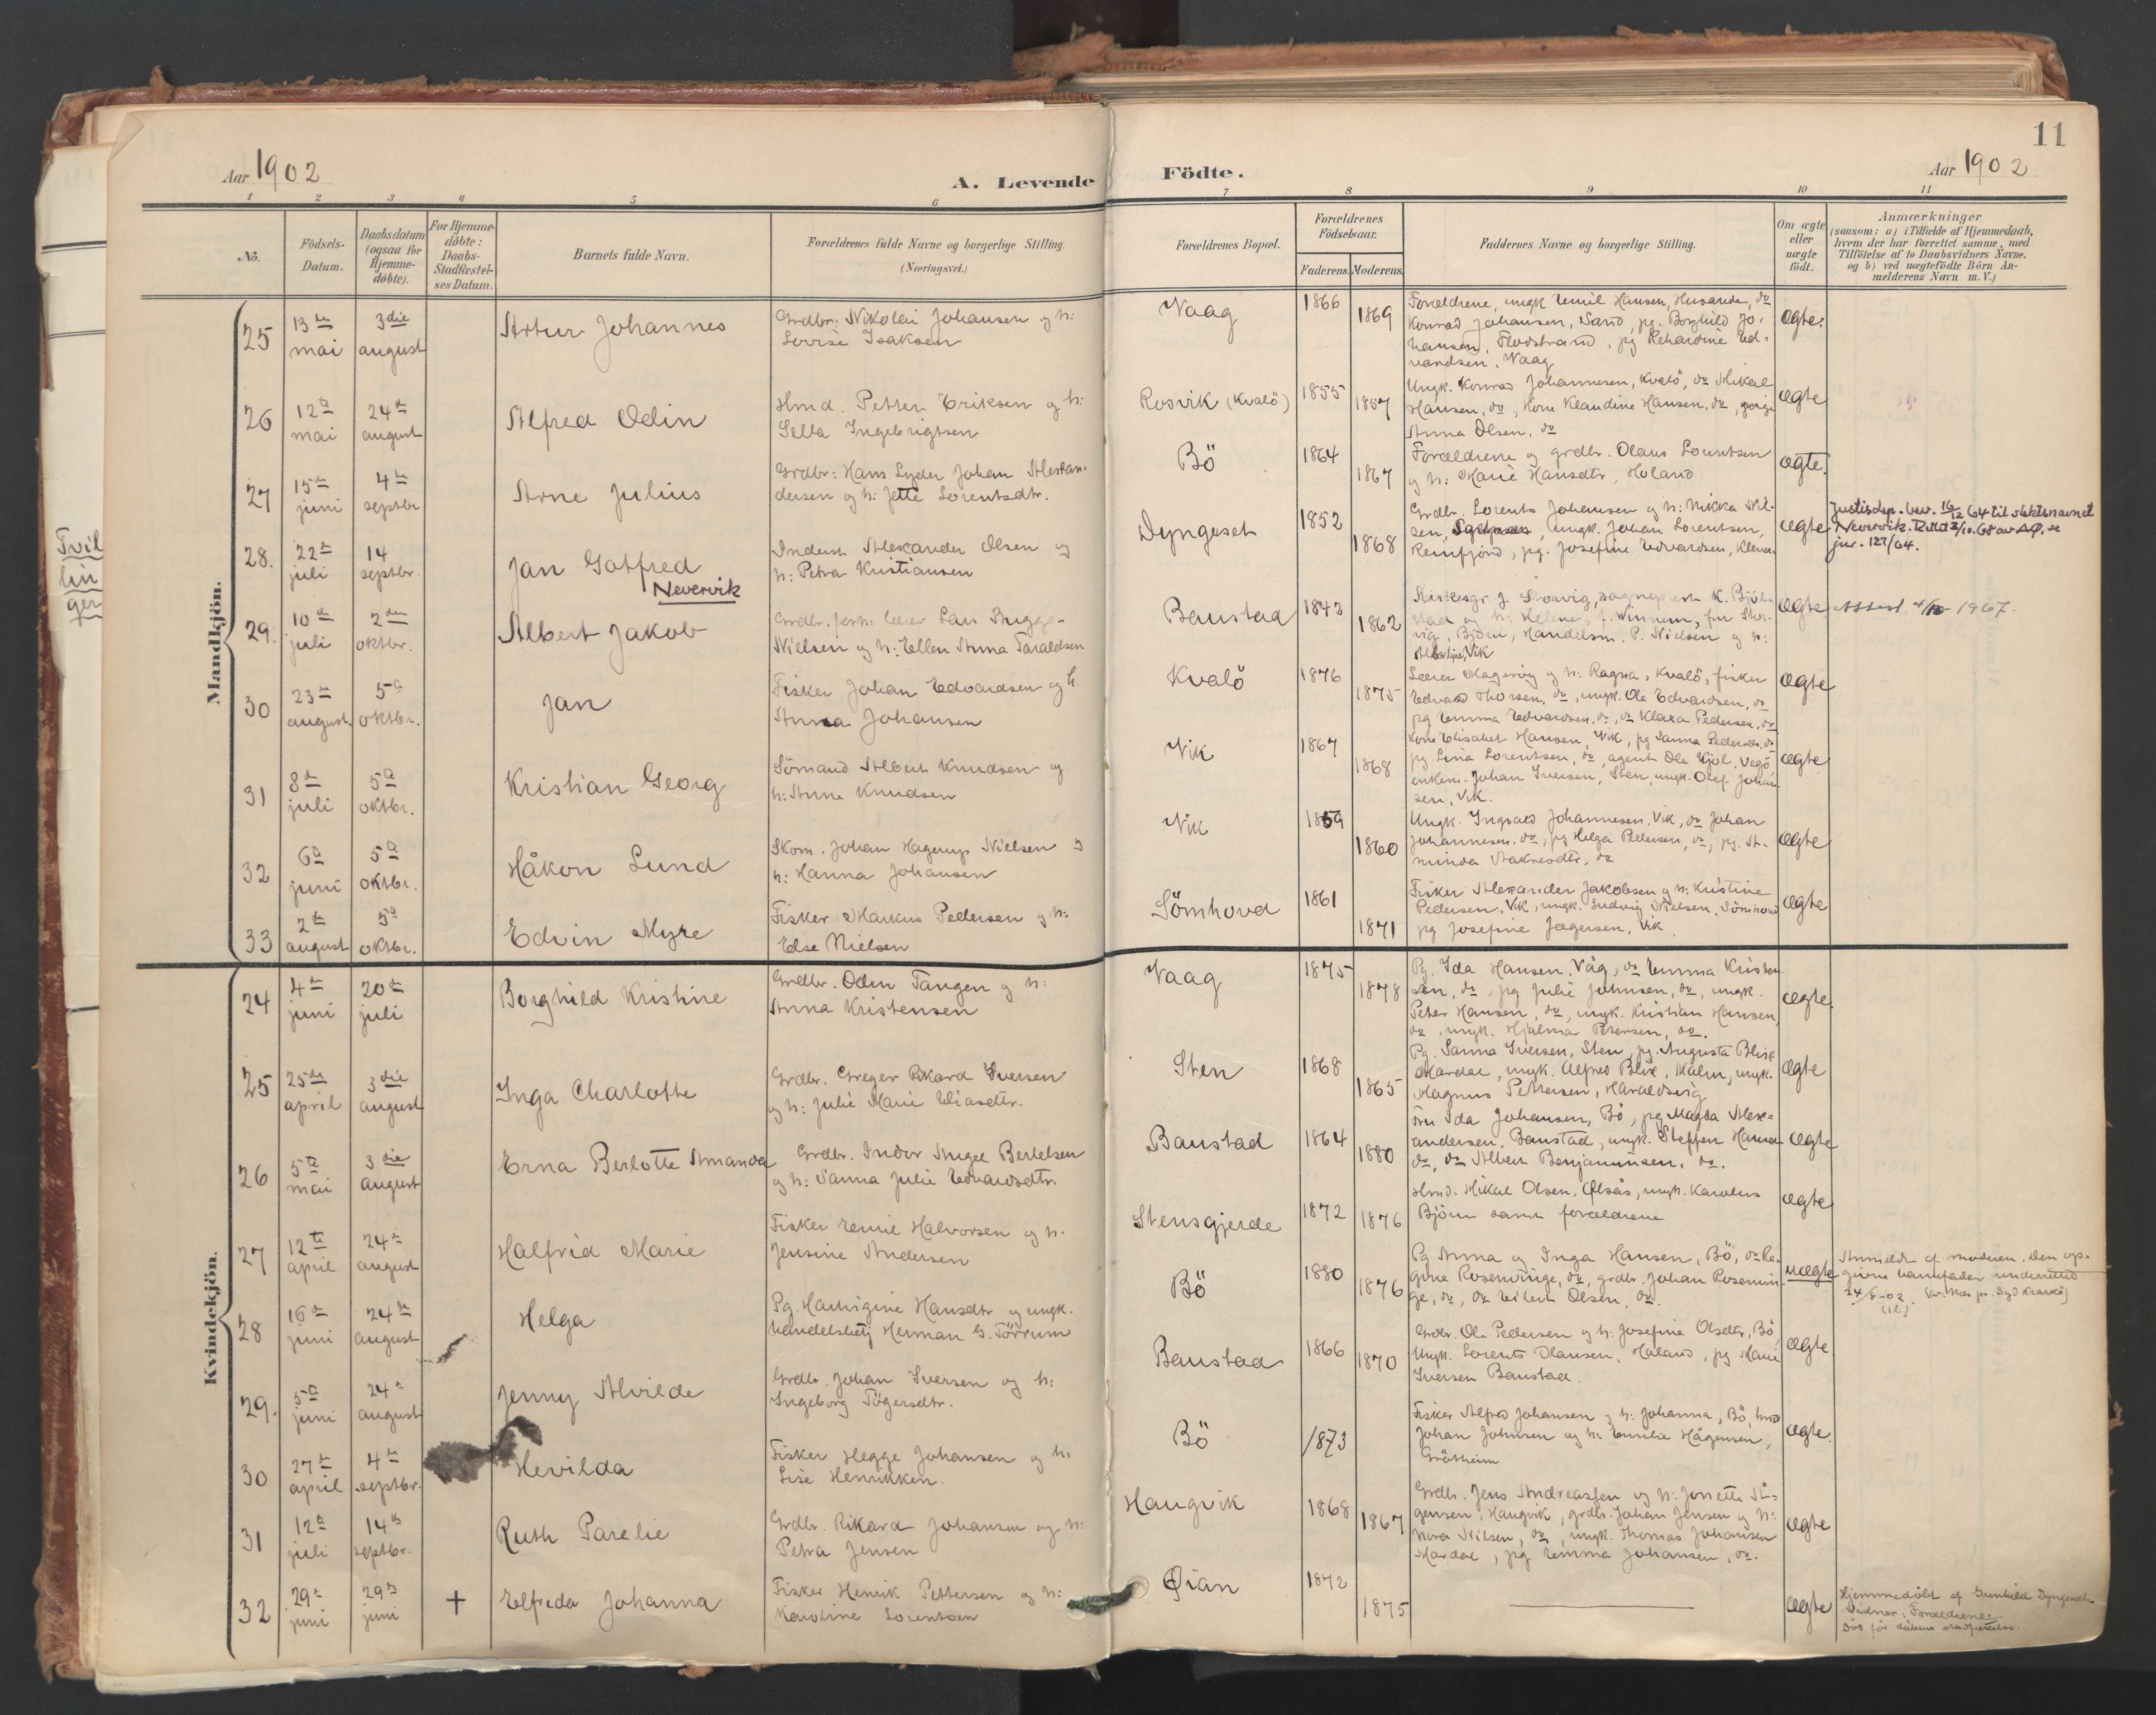 11
Aar 1902
A. Levende Födte.
Aar 1902
1 2 3 4 5 6 7 8 9 10 11
No.
Födsels-
Datum.
Daabsdatum
(ogsaa for
Hjemme-
döbte).
For Hjemme-
döbte:
Daabs-
Stadfæstel-
ses Datum.
Barnets fulde Navn.
Forældrenes fulde Navne og borgerlige Stilling.
(Næringsvei.)
Forældrenes Bopæl.
Forældrenes
Födselsaar.
Faderens. Moderens.
Faddernes Navne og borgerlige Stilling.
Om ægte
eller
uægte
födt.
Anmærkninger
(saasom: a) i Tilfælde af Hjemmedaab,
hvem der har forrettet samme, med
Tilföielse af to Daabsvidners Navne.
og b) ved uægtefödte Börn An-
melderens Navn m. V.)
Tvil
lin
ger
Mandkjön.
25
13de mai
3die august
Artur Johannes
Grdbr. Nikolai Johansen og h:
Lovise Isaksen
Naag
1866
1869
Forældrene, ungk Emil Hansen, Husande, do
Konrad Johansen, Sand, pg. Borghild Jo-
hansen, Flodstrand, pg Rehardine Ed-
vardsen, Vaag
ægte.
26
12te mai
24de august
Alfred Odin
Hmd. Petter Eriksen og h:
Sella Ingebrigtsen
Rosvik (Kvalö)
1855
1857
Ungk. Konrad Johannesen, Kvalö, do Mikal
Hansen, do, Kone Klaudine Hansen, do, pige
Anna Olsen, do
ægte
27
15de juni
4de septbr
Arne Julius
Grdbr: Hans Lyder Johan Alexan-
dersen og h: Jette Lorentsdtr.
Bö
1864
1867
Forældrene og grdbr. Olaus Lorentsen
og h: Marie Hansdtr, Holand
ægte.
28.
22de juli
14 septbr.
Jan Gotfred
Nevervik
Inderst Alexander Olsen og
h: Petra Kristiansen
Dyngeset
1852
1868
Grdbr. Lorents Johansen og h: Mikka Nil-
sen, ungk. Johan Lorentsen,
Remfjord, pg. Josefine Edvardsen,
ægte
Justisdep. bev. 16/12 64 til slektsnavnet
Nevervik. Rettet 2/10.68 av AØ. se
jnr. 127/64.
29.
10de juli
2den oktbr.
Albert Jakob
Grdbr. forh. lærer Lars Brugge-
Nielsen og h: Ellen Anna Taraldsen
Baustad
1842
1862
Kirkesgr. J. Storvig, sogneprest K. Bjöl-
stad og h: Helene, f. Winnem, fru Stor-
vig, Björn, Handelsm. P. Nielsen og h:
Albertine, Vik
ægte
Attest 4/10 1967.
30
23de august
5te oktbr.
Jan
Fisker Johan Edvardsen og h.
Anna Johansen
Kvalö
1876
1875
Lærer Hagerög og h: Ragna, Kvalö, fisker
Edvard Thorsen, do, ungk. Ole Edvardsen, do
pg Emma Edvardsen, do, do Klara Pedersen, do
ægte
31
8de juli
5te oktbr.
Kristian Georg
Sömand Albert Knudsen og
h: Anne Knudsen
Vik
1867
1868
Kone Elisabet Hansen, Vik, pg Sanna Pedersdtr, do
pg. Lina Lorentsen, do, agent Ole Kjöl, Vegö
enkem. Johan Iversen, Sten, ungk. Olef Johan-
sen, Vik.
ægte
32
6te juni
5te oktbr.
Håkon Lund
Skom. Johan Hagerup Nielsen og
h: Hanna Johansen
Vik
1859
1860
Ungk. Ingvald Johannesen, Vik, do Johan
Johannesen, do, pg Helga Pedersen, do, pg. A-
minda Aakredtr, do
ægte
33
2de august
5te oktbr.
Edvin Myre
Fisker Markus Pedersen og h:
Else Nielsen
Sömhovd
1861
1871
Fisker Alexander Jakobsen og h: Kristine
Pedersen, Vik, ungk. Ludvig Nielsen, Sömhovd
pg Josefine Jægersen, Vik.
ægte
Kvindekjön.
24
4de juni
20de juli
Borghild Kristine
Grdbr. Odin Tangen og h:
Anna Kristensen
Vaag
1875
1878
Pg. Ida Hansen, Våg, do Emma Kristen-
sen, do, pg Julie Johnsen, do, ungk.
Peter Hansen, do, ungk. Kristian Hansen,
do, ungk. Hjalmar Petersen, do.
ægte.
25
25de april
3die august
Inga Charlotte
Grdbr. Greger Rikard Iversen
og h: Julie Marie Eliasdtr.
Sten
1868
1865
Pg. Sanna Iversen, Sten, pg. Augusta Blix
Mardal, ungk. Alfred Blix, Malm, ungk.
Magnus Pettersen, Haraldsvig
ægte
26
5te mai
3die august
Erna Berlotte Amanda
Grdbr. Indor Angel Bertelsen
og h: Sanna Julie Edvardsdtr.
Baustad
1864
1880
Fru Ida Johansen, Bö, pg Magda Alex-
andersen, Baustad, ungk. Steffen Hansen
do, do Albert Benjaminsen, do.
ægte
27
12te april
24de august
Halfrid Marie
Fisker Emil Halvorsen og h.
Jensine Andersen
Stensgjerde
1872
1876
Hmd. Mikal Olsen, Ölsås, ungk. Karolus
Björn samt forældrene
ægte
28
16de juni
24de august
Helga
Pg. Hartvigine Hansdtr og ungk.
handelsbetj Herman G. Törrum
Bö
1880
1876
Pg Anna og Inga Hansen, Bö, do Re-
gine Rosenvinge, do, grdbr. Johan Rosenvin-
ge, do, do Eilert Olsen, do.
uægte
Anmeldt af moderen. Den op-
givne barnefader underrettet
24/8-02.
29.
5te juni
24de august
Jenny Alvilde
Grdbr. Johan Iversen og h:
Ingeborg Tögersdtr.
Baustad
1866
1870
Grdbr. Ole Pedersen og h: Josefine Olsdtr, Bö,
Ungk. Lorents Olausen, Haland, pg Marie
Iversen Baustad.
ægte
30
27de april
4de septbr.
Hevilda
Fisker Hegge Johansen og h:
Lise Henrikken.
Bö
1873
Fisker Alfred Johansen og h: Johanna, Bö, hmd
Johan Johnsen og h: Emilie Hågensen,
Gråtheim
ægte.
31
12te juli
14de septbr.
Ruth Parelie
Grdbr. Rikard Johansen og h:
Petra Jensen
Haugvik
1868
1867
Grdbr. Jens Andreassen og h: Jonette Å-
gensen, Haugvik, grdbr. Johan Jensen og h:
Nora Nilsen, do, ungk. Thomas Johansen
Mardal, pg Emma Johansen, do.
ægte
32
29de juni
29de juni
+
Elfreda Johanna
Fisker Henrik Pettersen og h:
Karoline Lorentsen
Øian
1872
1875
ægte
Hjemmedöbt af Gunhild Dyngeset.
Vidner: Forældrene.
Död för dåbens stadfæstelse.